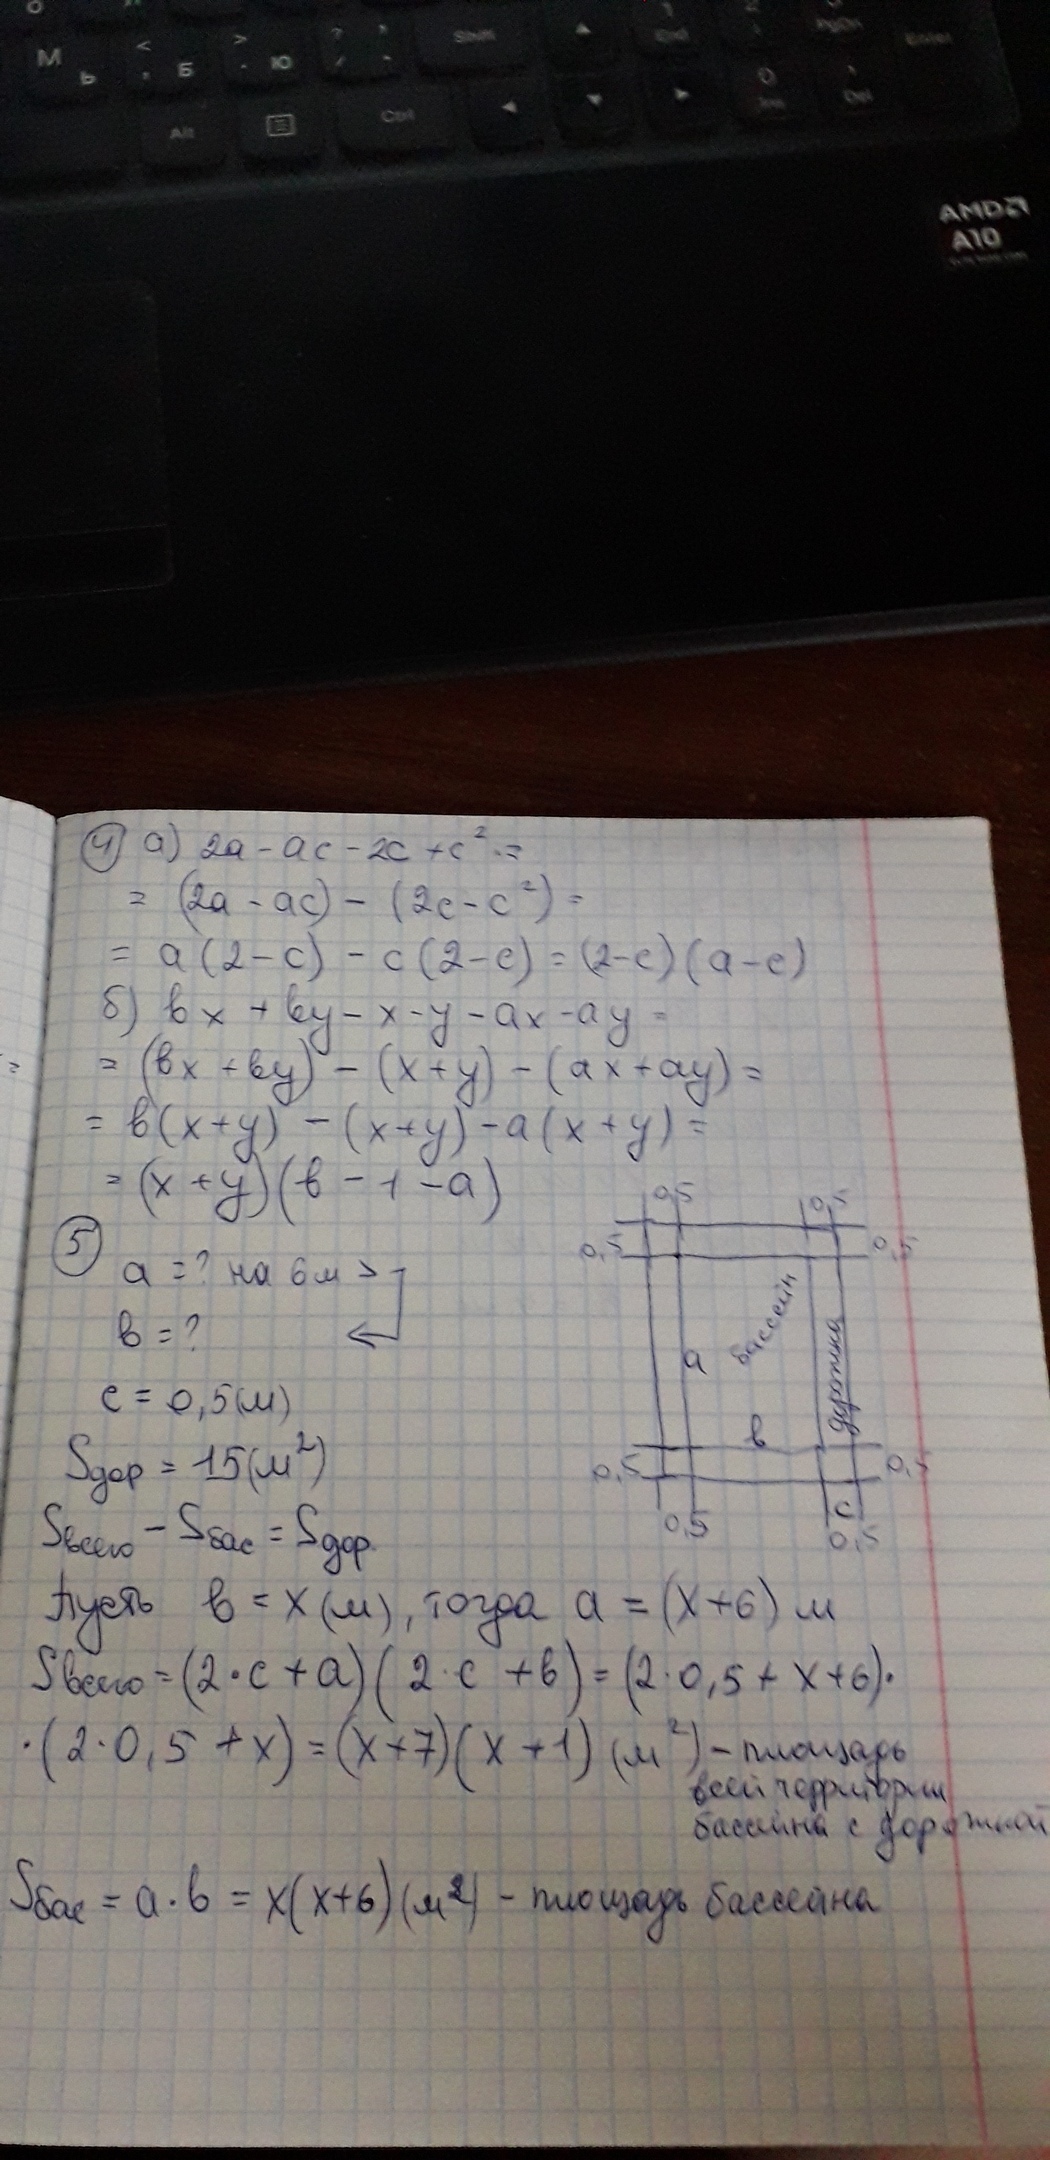 М Ь < , Б > . Ю ? / Shift ▲ 1 End PgDn Enter
Alt Ctrl ◄ ▼ ► 0 Ins Del
AMD
A10
④ а) 2a - ac - 2c + c² =
= (2a - ac) - (2c - c²) =
= a(2-c) - c(2-c) = (2-c)(a-c)
б) вx + вy - x - y - ax - ay =
= (вx + вy) - (x+y) - (ax+ay) =
= в(x+y) - (x+y) - a(x+y) =
= (x+y)(в - 1 - a)
⑤
a = ? на 6м >
в = ?
c = 0,5(м)
Sдор = 15(м²)
Sвсего - Sбас = Sдор.
0,5 0,5
0,5 0,5
бассейн
а
дорожка
в
0,5 0,5
с
0,5 0,5
Пусть в = x(м), тогда a = (x+6) м
Sвсего = (2·c + a)(2·c + в) = (2·0,5 + x+6)·
·(2·0,5 + x) = (x+7)(x+1) (м²) - площадь
всей территории
басейна с дорожкой
Sбас = a·в = x(x+6)(м²) - площадь бассейна
=